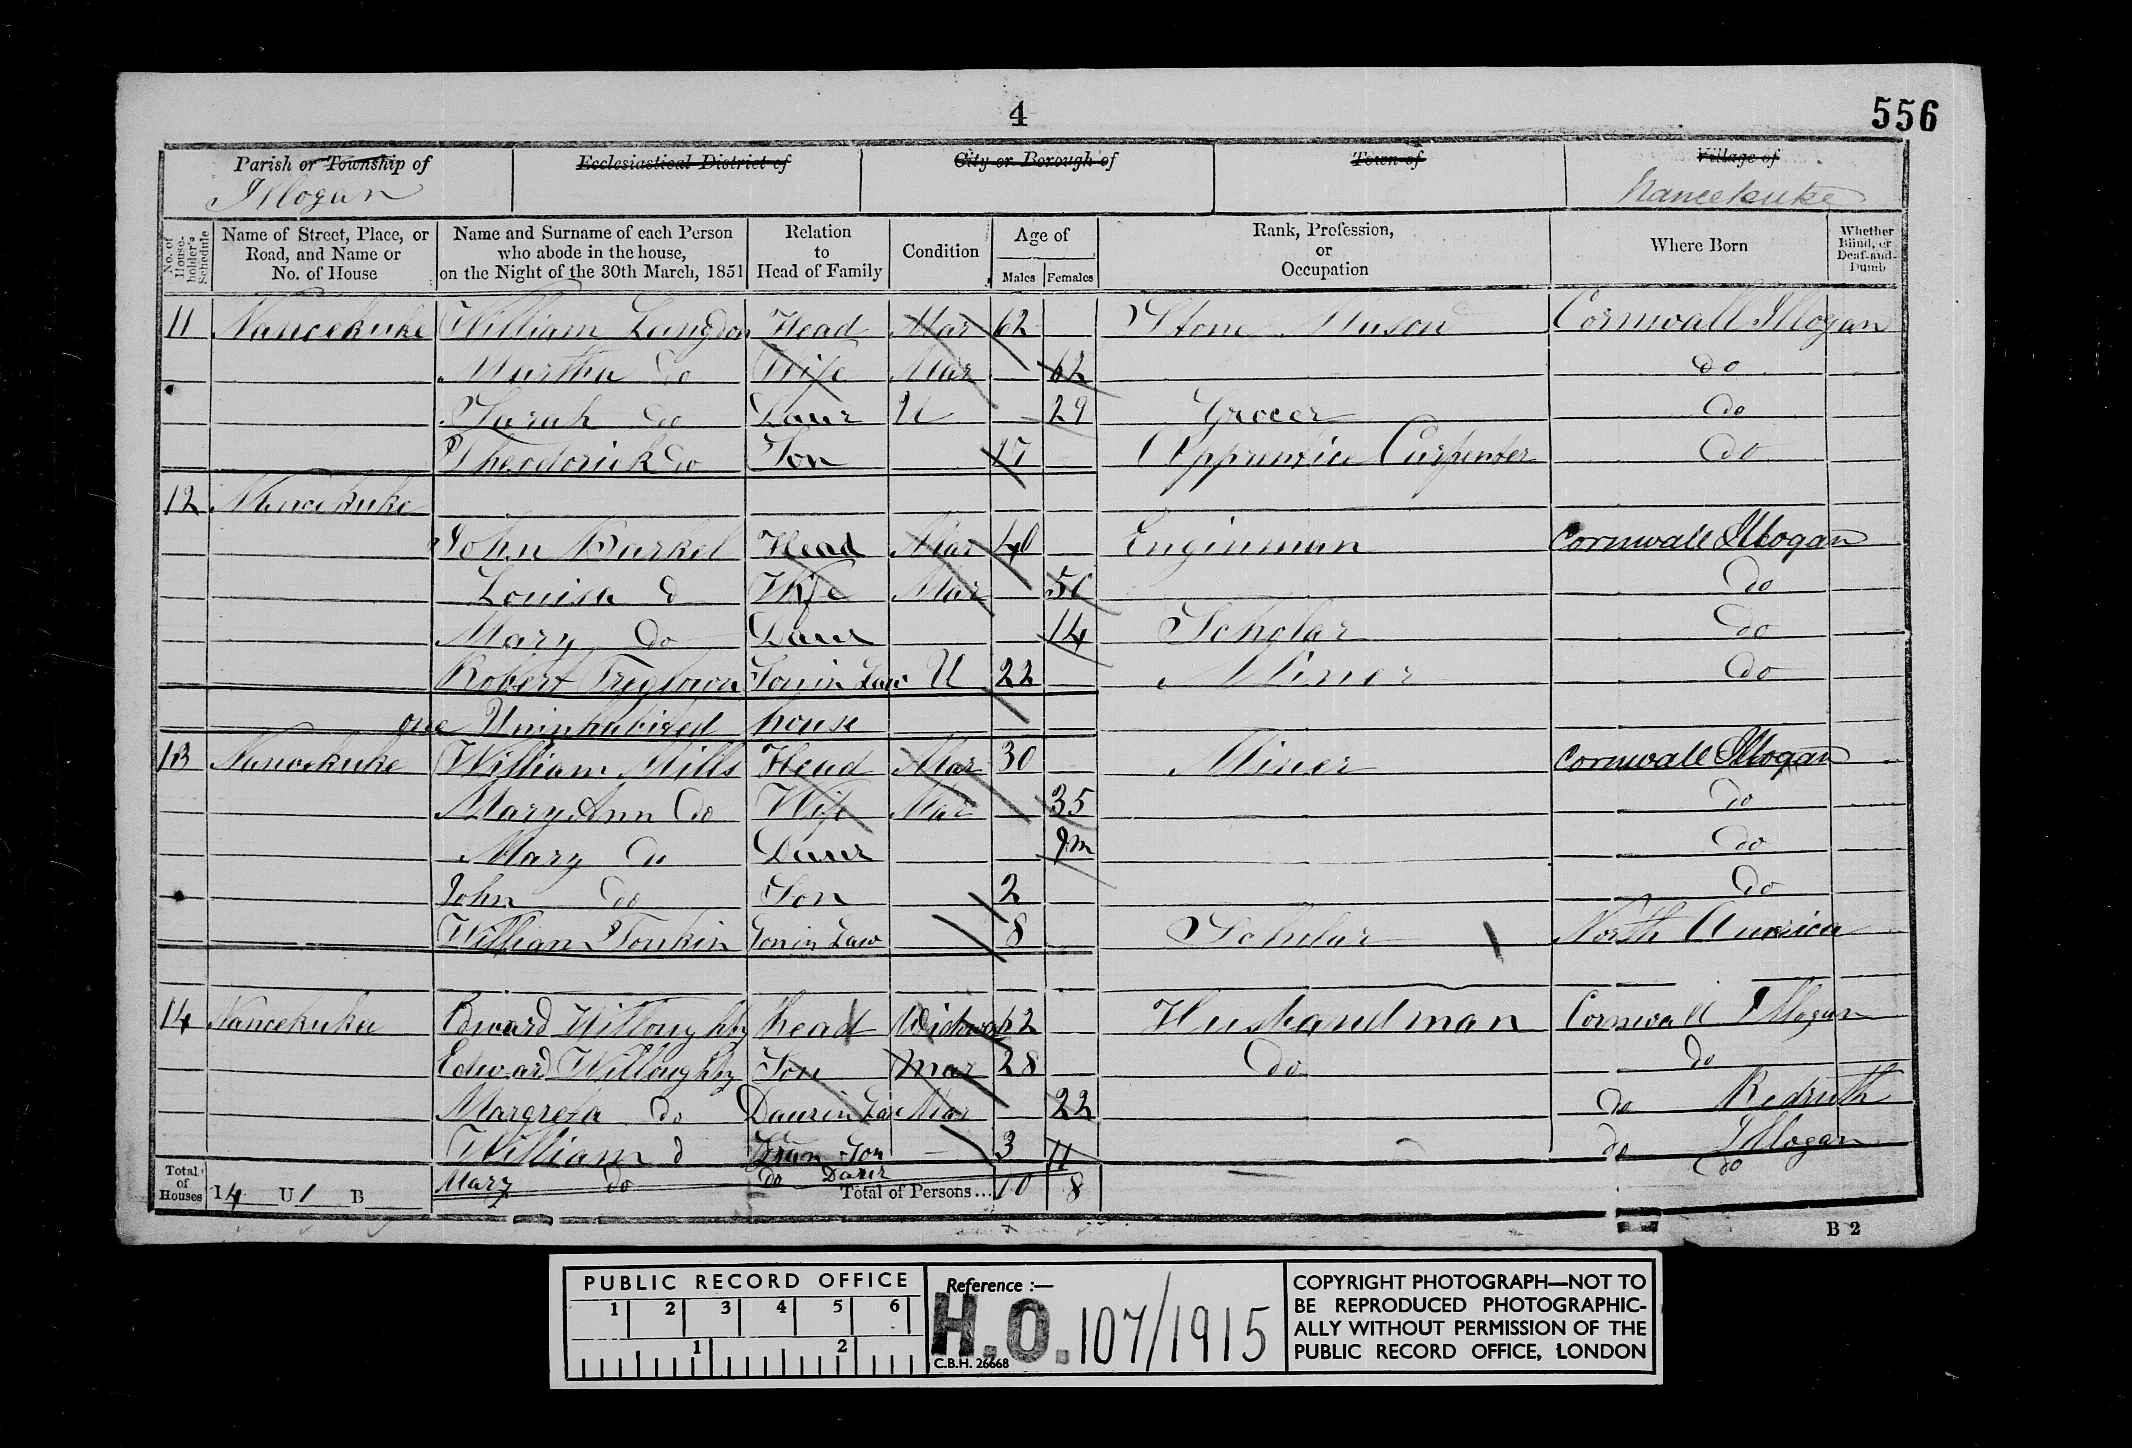 4
556
Parish or Township of Ecclesiastical District of City or Borough of Town of Village of
Illogan Nancekuke
No. of House-holder's Schedule Name of Street, Place, or Road, and Name or No. of House Name and Surname of each Person who abode in the house, on the Night of the 30th March, 1851 Relation to Head of Family Condition Age of Males Females Rank, Profession, or Occupation Where Born Whether Blind, or Deaf-and-Dumb
11 Nancekuke William Langdon Head Mar 62 Stone Mason Cornwall Illogan
Martha Do Wife Mar 62 do
Sarah do Daur U 29 Grocer do
Theodorick do Son 17 Apprentice Carpenter do
12 Nancekuke
John Barkel Head Mar Enginman Cornwall Illogan
Louisa d Wife Mar do
Mary Do Daur 14 Scholar do
Robert Treglown Son in Law U 22 Miner do
one Uninhabited house
13 Nancekuke William Mills Head Mar 30 Miner Cornwall Illogan
Mary Ann Do Wife Mar 35 do
Mary do Daur 9m do
John do Son 2 do
William Tonkin Son in Law 8 Scholar North America
14 Nancekuke Edward Willoughby head Widower 62 Husbandman Cornwall Illogan
Edward Willoughby Son Mar 28 do do
Margreta do Daur in Law Mar 22 do Redruth
William d Gran Son 3 do Illogan
Mary do do Daur 11 do
Total of Houses 14 U 1 B Total of Persons... 10 8
B 2
PUBLIC RECORD OFFICE
1 2 3 4 5 6
1 2
Reference :—
H.O. 107/1915
C.B.H. 26668
COPYRIGHT PHOTOGRAPH—NOT TO
BE REPRODUCED PHOTOGRAPHIC-
ALLY WITHOUT PERMISSION OF THE
PUBLIC RECORD OFFICE, LONDON